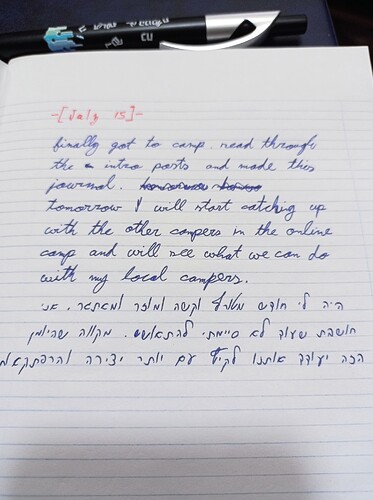 -[July 15]-
finally got to camp. read through
the intro posts and made this
journal.
tomorrow I will start catching up
with the other campers in the online
camp and will see what we can do
with my local campers.
היה לי חודש מטורף וקשה ומוזר ומאתגר. אני
חושבת שעוד לא סיימתי להתאושש. מקווה שהיומן
הזה יעודד אותנו לקיץ עם יותר יצירה והרפתקאות